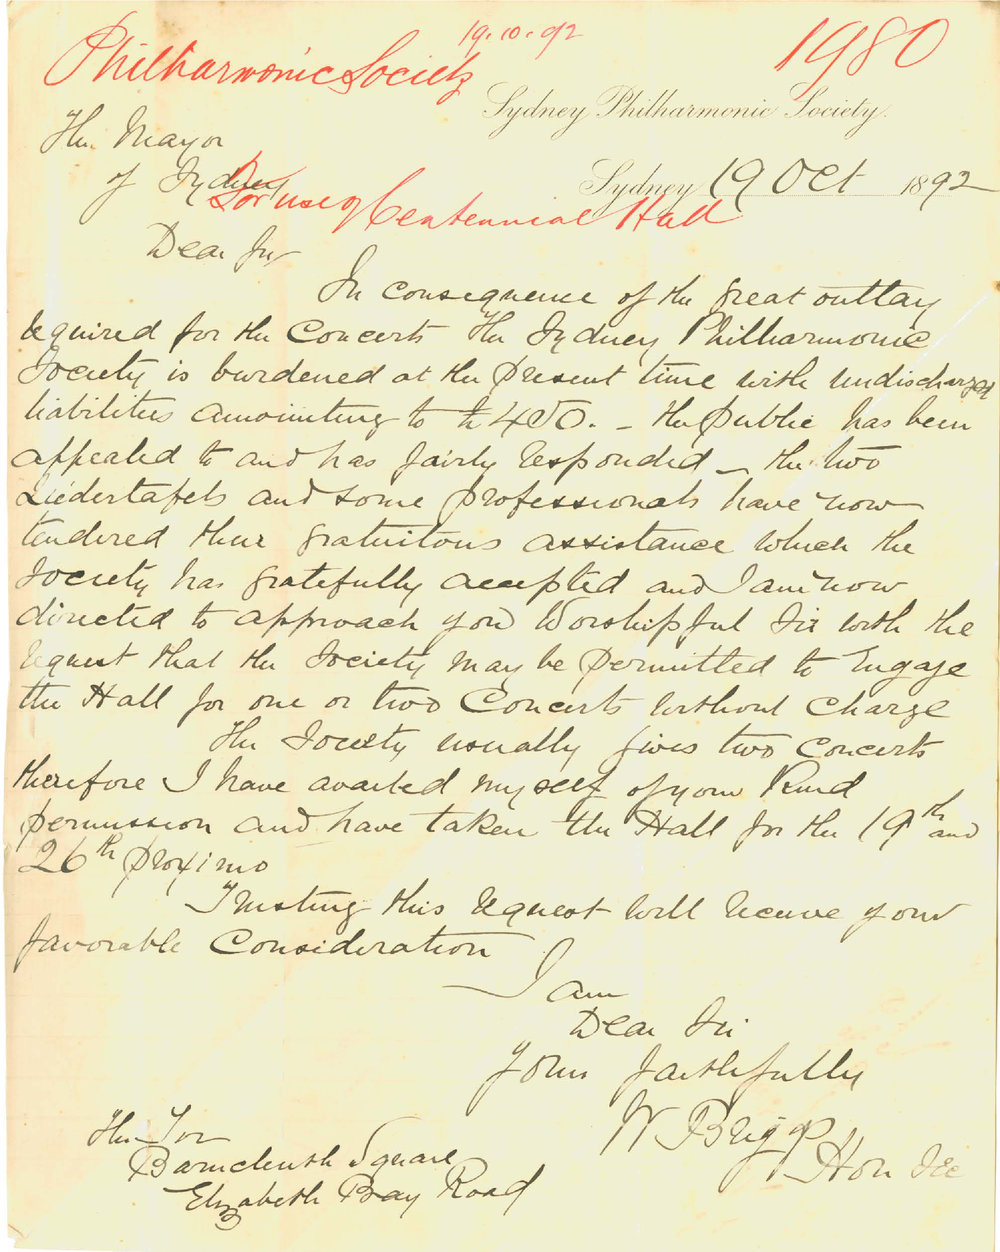 19.10.92
1980
Philharmonic Society
Sydney Philharmonic Society.
The Mayor
of Sydney
Sydney 19 Oct 1892
For use of Centennial Hall
Dear Sir
In consequence of the great outlay
required for the Concerts The Sydney Philharmonic
Society is burdened at the present time with undischarged
liabilities amounting to £450. – the public has been
appealed to and has fairly responded – the two
Liedertafels and some professionals have now
tendered their gratuitous assistance which the
Society has gratefully accepted and I am now
directed to approach you Worshipful Sir with the
request that the Society may be permitted to Engage
the Hall for one or two Concerts without charge
The Society usually gives two Concerts
therefore I have availed myself of your Kind
permission and have taken the Hall for the 19th and
26th proximo
Trusting this request will receive your
favorable Consideration
I am
Dear Sir
Yours faithfully
W Briggs
Hon Sec
The Tor
Barncleuth Square
Elizabeth Bay Road